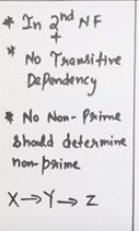 * In 2nd NF
+
* No Transitive
Dependency
* No Non-Prime
should determine
non prime
X→Y→Z